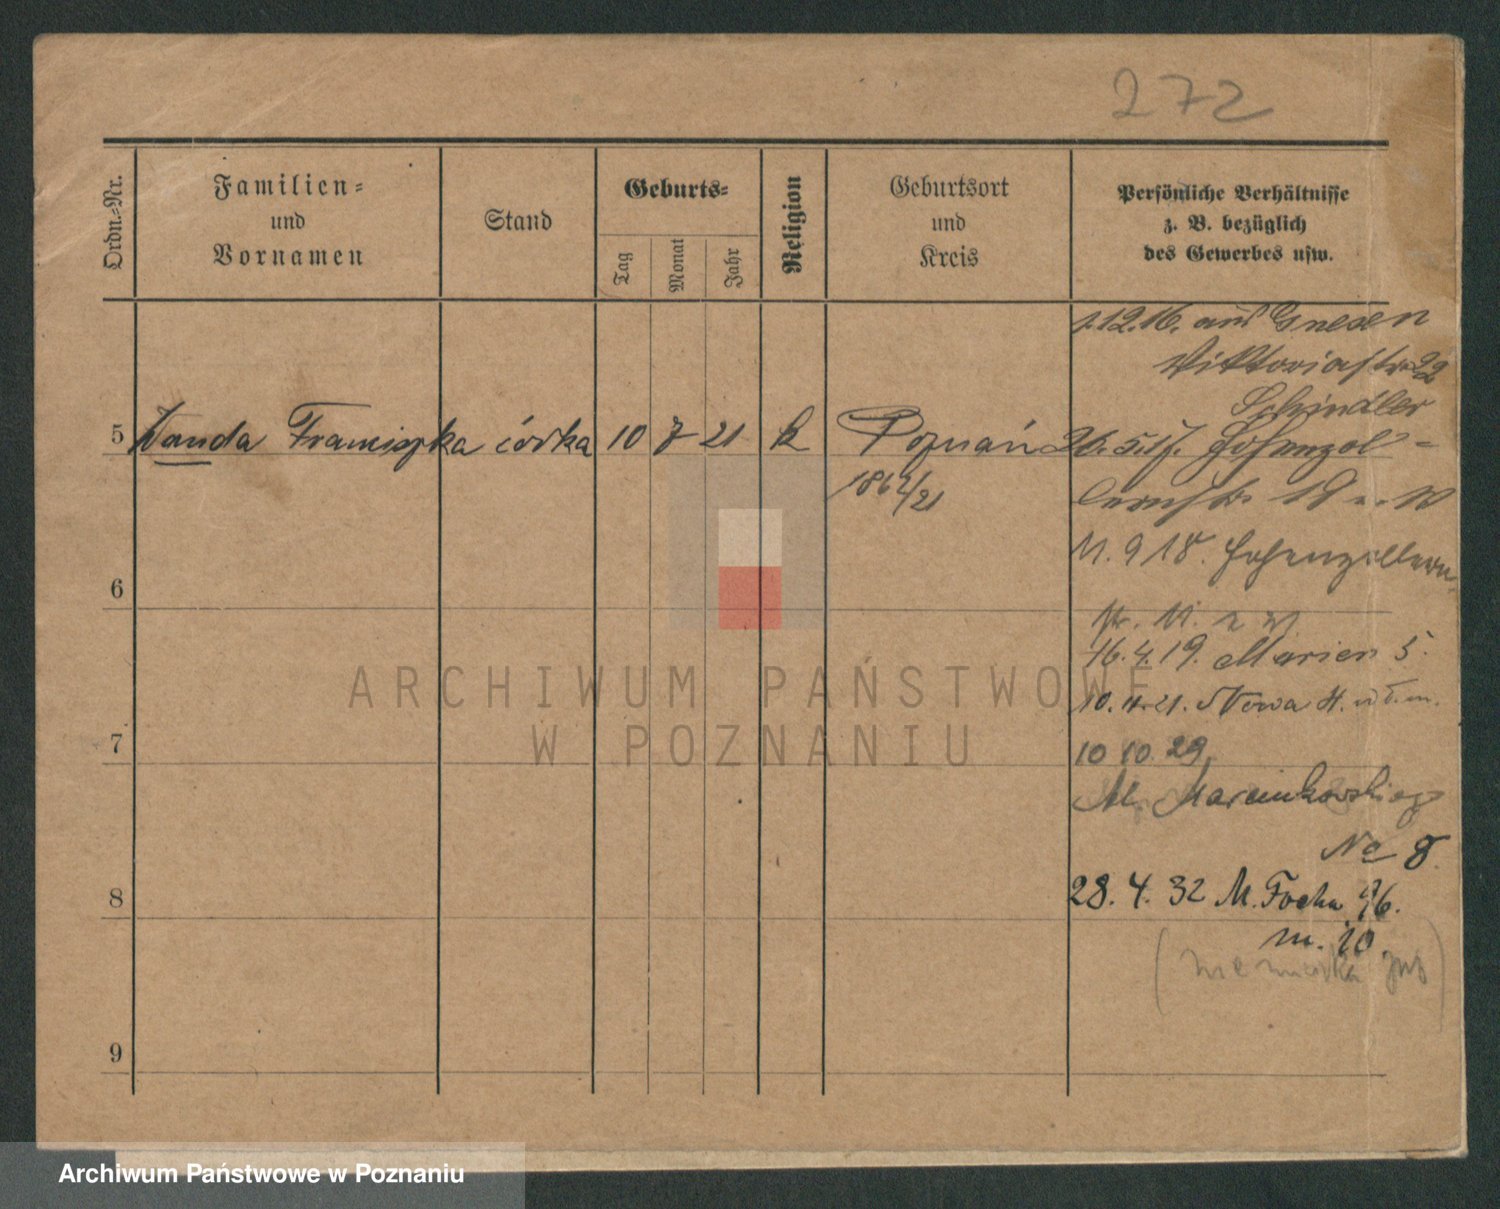 272
Ordn.-Nr.
Familien-
und
Vornamen
Stand
Geburts-
Tag
Monat
Jahr
Religion
Geburtsort
und
Kreis
Persönliche Verhältnisse
z. B. bezüglich
des Gewerbes usw.
1.12.16. aus Gnesen
Viktoriastr 22
Schindler
5 Wanda Franciszka córka 10 7 21 k Poznań 26.5.17. Hohenzol-
lernstr
11.9 18. Hohenzollern
6
str. 11.
16.4.19. Marien 5.
10. 21. Nowa
7
10 10. 29.
Al. Marcinkowskiego
No 8.
8
28. 4. 32 M. Focha 96.
m. 10.
9
ARCHIWUM PAŃSTWOWE
W POZNANIU
Archiwum Państwowe w Poznaniu